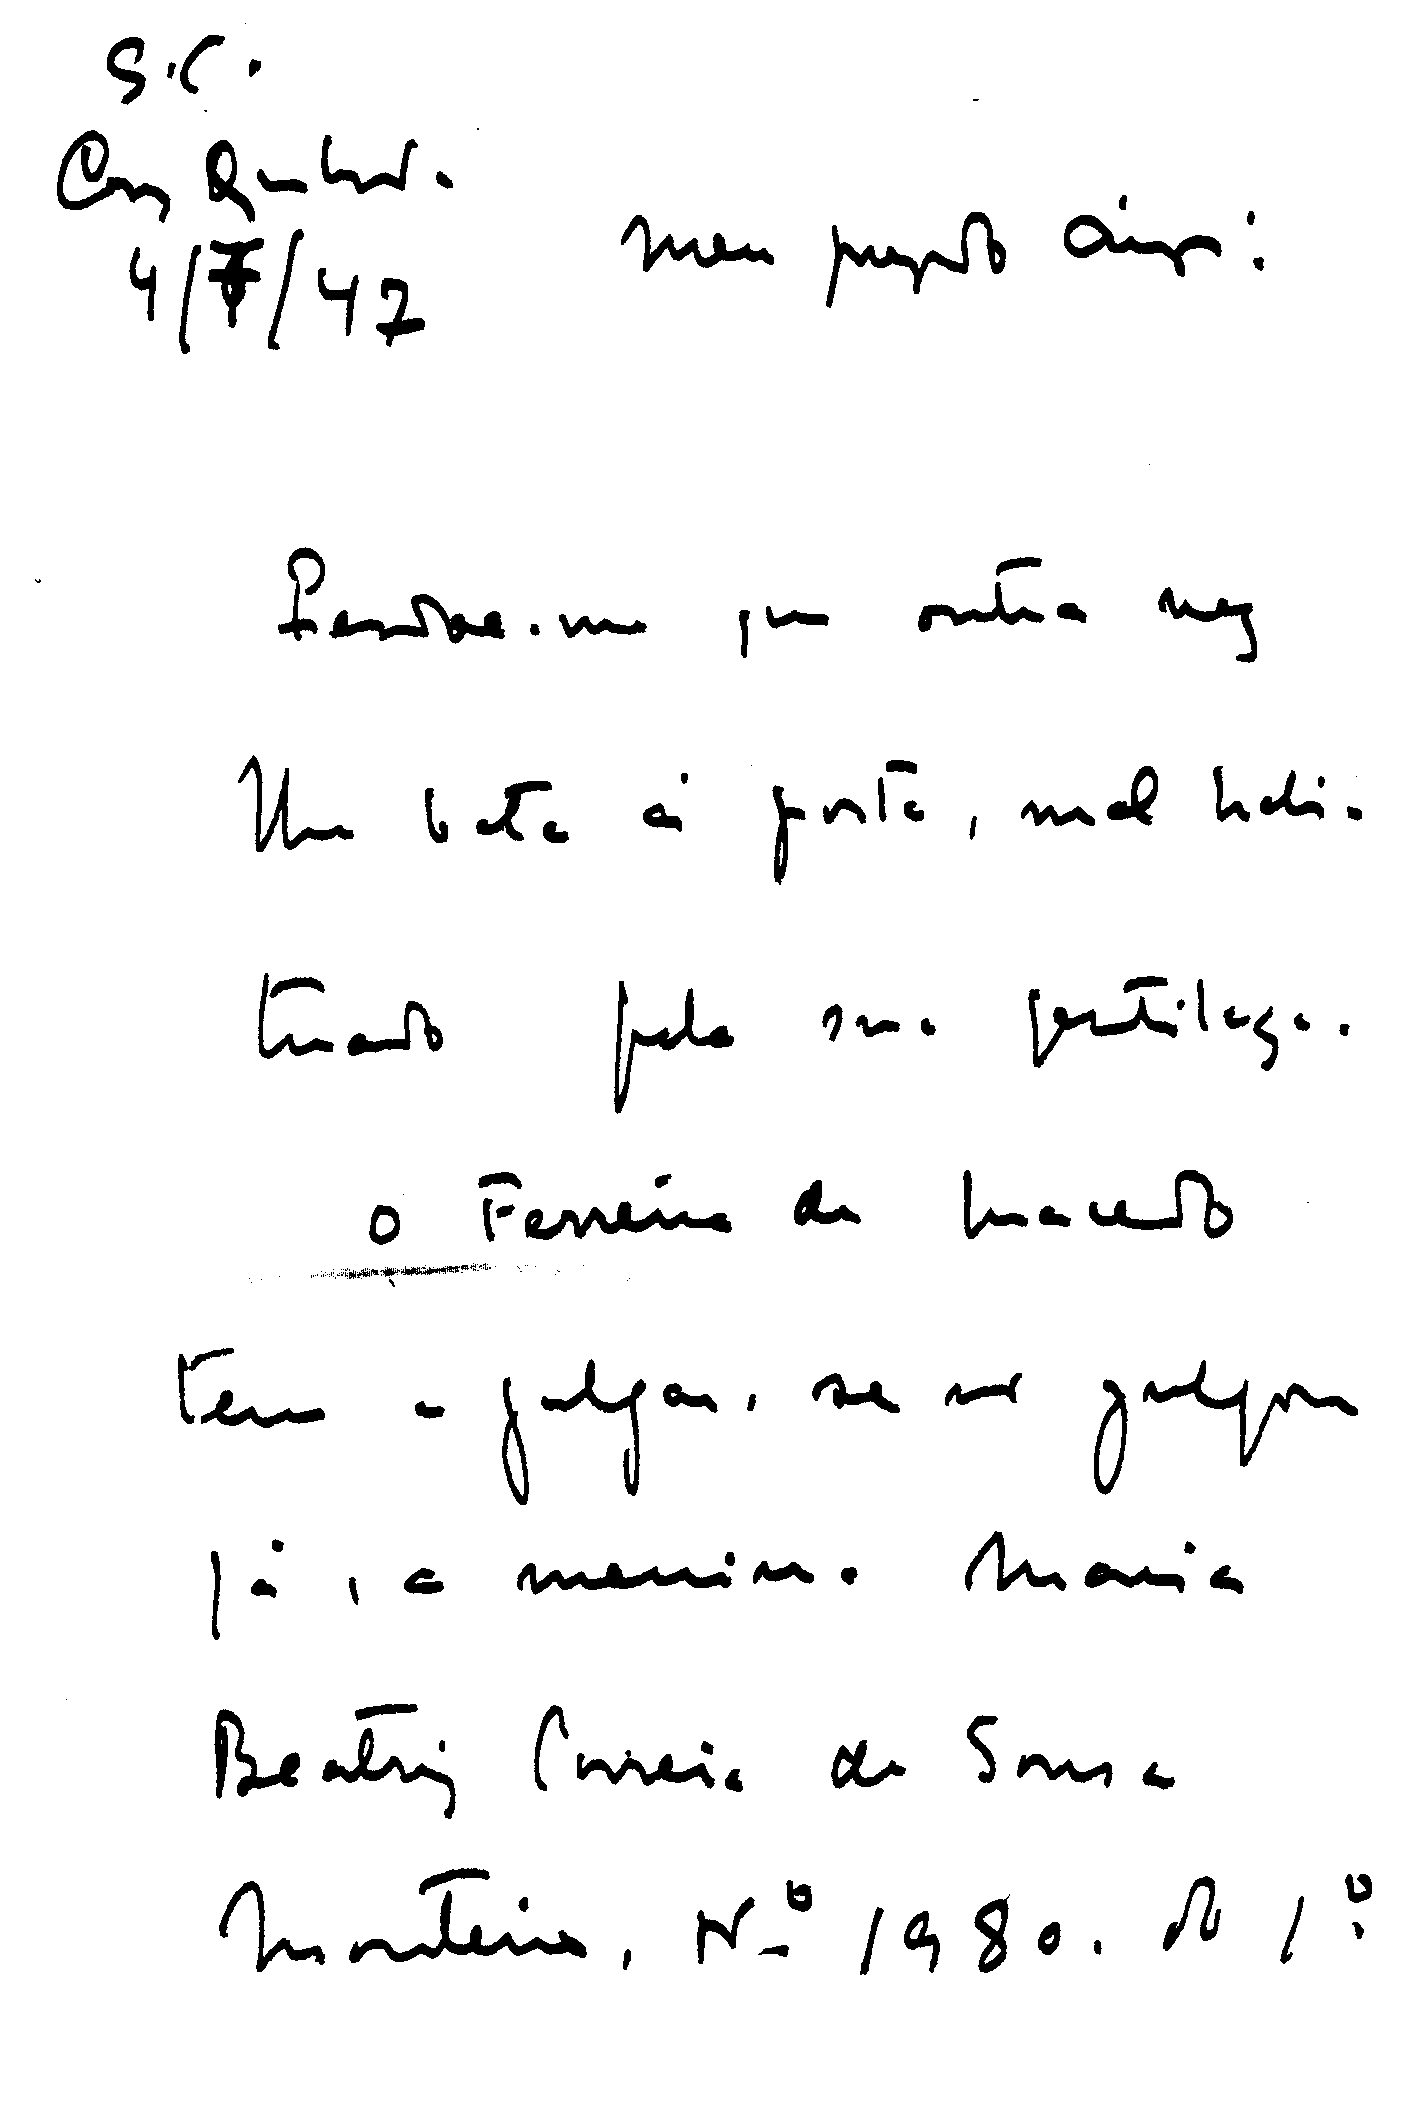 S.C.
4/7/47
Meu prezado Amigo:
Perdoe-me que outra vez
lhe bata à porta, mal habi-
tuado pela sua gentileza.
O Ferreira de Macedo
tem a julgar, se não julgou
já, a menina Maria
Beatriz Correia de Sousa
Monteiro, Nº 1980. do 1º